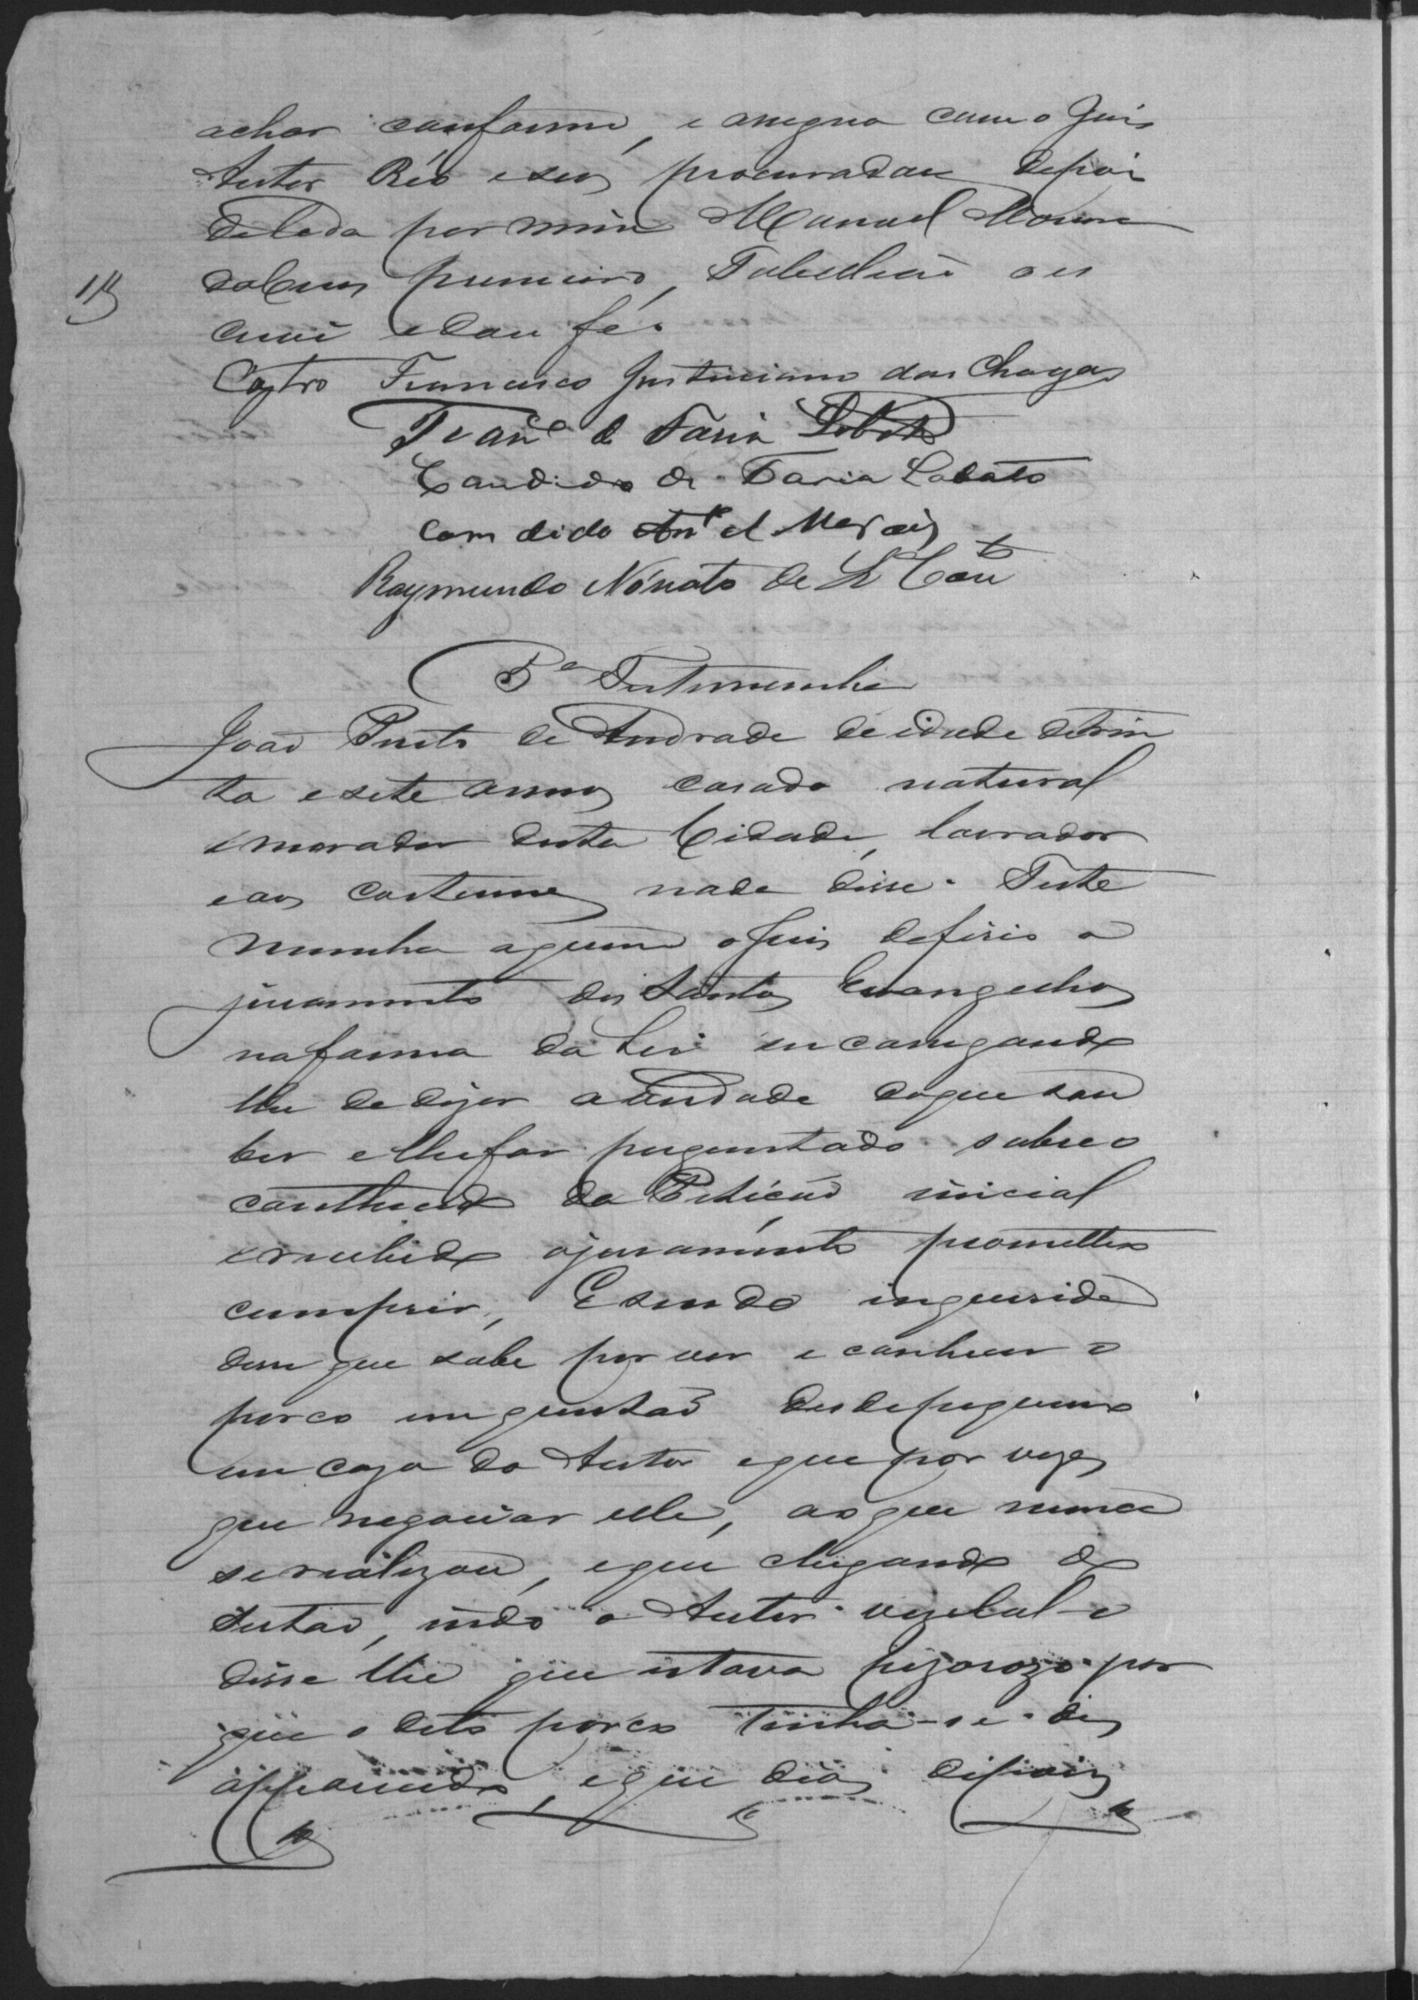 achar conforme, e assigna com o Juis
Autor Réo e seos procuradores depois
de lida por mim Manuel Moura
primeiro Tabelliaõ o es
crivi e dou fé.
Castro Francisco Justiniano das Chagas
Franc.co de Faria Lobato
Candido de Faria Lobato
Candido Ant.o d Moraes
Raymundo Nonato de
5ª Testemunha
João Pinto de Andrade de idade de trin
ta e sete annos casado natural
e morador desta Cidade, lavrador
e aos costumes nada disse. Teste
munha a quem o Juis deferio o
juramento dos Santos Evangelhos
na forma da Lei encarregando
lhe de dizer a verdade do que sou
ber e lhe for preguntado sobre o
conthiudo da Petição inicial
e recebido o juramento prometteo
cumprir, E sendo inquerido
disse que sabe por ver e conhecer o
porco em questaõ desde piqueno
em caza do Autor e que por vezes
quis negociar elle, ao que nunca
se realizou, e que chegando do
Sertaõ, indo o Autor vezital-o
disse lhe que estava pezarozo por
que o dito porco tinha-se des
apparecido, e que dias depois